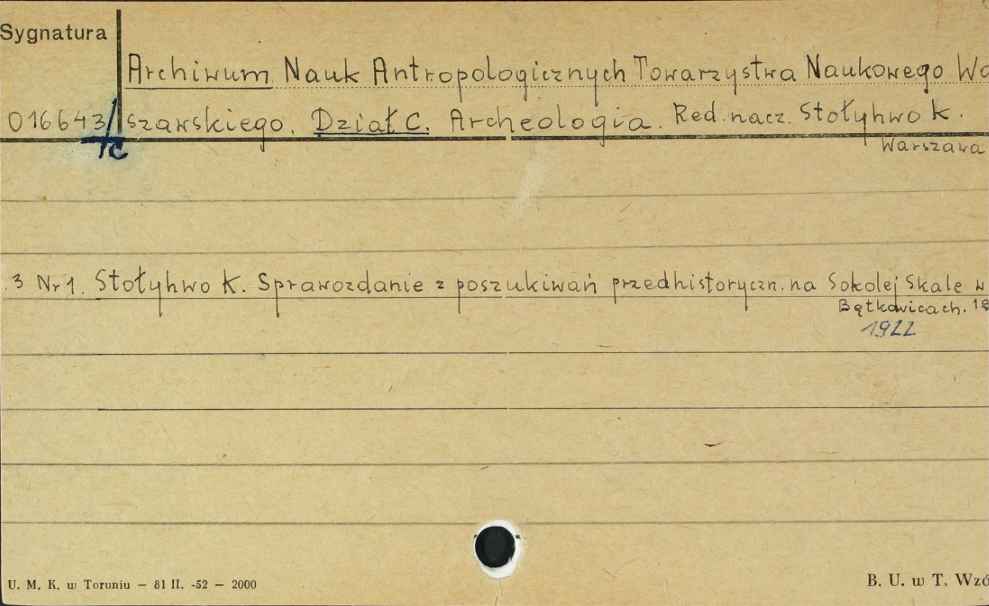 Sygnatura
Archiwum Nauk Antropologicznych Towarzystwa Naukowego Wa
016643/c szawskiego. Dział C. Archeologia. Red. nacz. Stołyhwo K.
Warszawa
.3 Nr 1. Stołyhwo K. Sprawozdanie z poszukiwań przedhistoryczn. na Sokolej Skale w
Bętkowicach. 19
1922
U. M. K. w Toruniu — 81 II. -52 — 2000
B. U. w T. Wzó